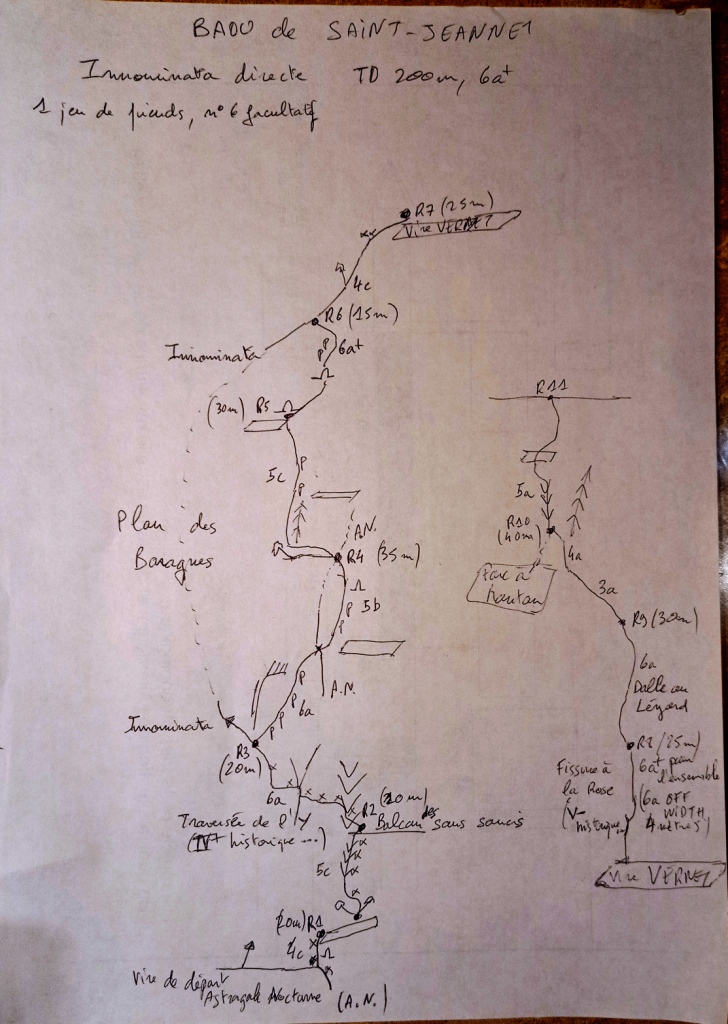 BAOU de SAINT-JEANNET
Innominata directe TD 200m, 6a+
1 jeu de friends, n° 6 facultatif
R7 (25m)
Vire VERNET
4c
R6 (15m)
Innominata
P P 6a+
(30m) R5
P
5c
P
Plan des
Baragnes
A.N.
R4 (35m)
P 5b
P
P
P 6a
P
P
A.N.
Innominata
R3
(20m)
6a
Traversée de l'Y
(IV+ historique...)
R2 (20m)
Balcon des sans soucis
5c
(20m) R1
4c
Vire de départ
Astragale Nocturne (A.N.)
R11
5a
R10
(40m)
4a
Parc à
3a
R9 (30m)
6a
Dalle au
Lézard
(25m)
Fissure à
la Rose
(V-
historique...
6a+ pour
l'ensemble
(6a OFF
WIDTH
4 mètres)
Vire VERNET